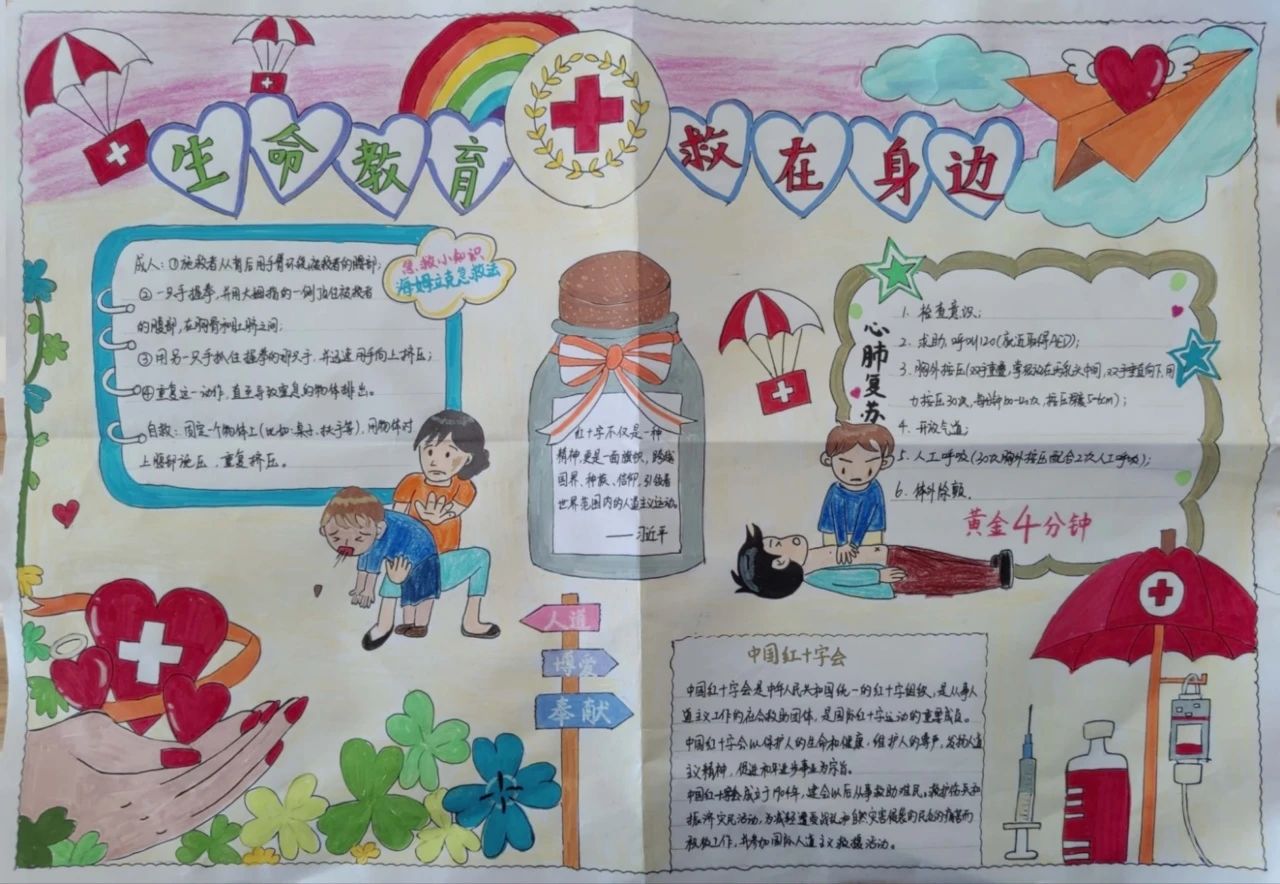 生命教育 救在身边
急救小知识
海姆立克急救法
成人：①施救者从背后用手臂环绕被救者的腹部；
②一只手握拳，并用大拇指的一侧顶住被救者
的腹部，在胸骨和肚脐之间；
③用另一只手抓住握拳的那只手，并迅速用手向上挤压；
④重复这一动作，直至导致窒息的物体排出。
自救：固定一个物体上（比如：桌子、扶手等），用物体对
上腹部施压，重复挤压。
红十字不仅是一种
精神，更是一面旗帜，跨越
国界、种族、信仰，引领着
世界范围内的人道主义运动。
——习近平
心肺复苏
1. 检查意识；
2. 求助，呼叫120（就近取得AED）；
3. 胸外按压（双手重叠，掌根放在两乳头中间，双手垂直向下，用
力按压30次，每分钟100-120次，按压深度5-6cm）；
4. 开放气道；
5. 人工呼吸（30次胸外按压配合2次人工呼吸）；
6. 体外除颤。
黄金4分钟
人道
博爱
奉献
中国红十字会
中国红十字会是中华人民共和国统一的红十字组织，是从事人
道主义工作的社会救助团体，是国际红十字运动的重要成员。
中国红十字会以保护人的生命和健康，维护人的尊严，发扬人道
主义精神，促进和平进步事业为宗旨。
中国红十字会成立于1904年，建会以后从事救助难民、救护伤兵和
赈济灾民活动，为减轻遭受战乱和自然灾害侵袭的民众的痛苦而
积极工作，并参加国际人道主义救援活动。